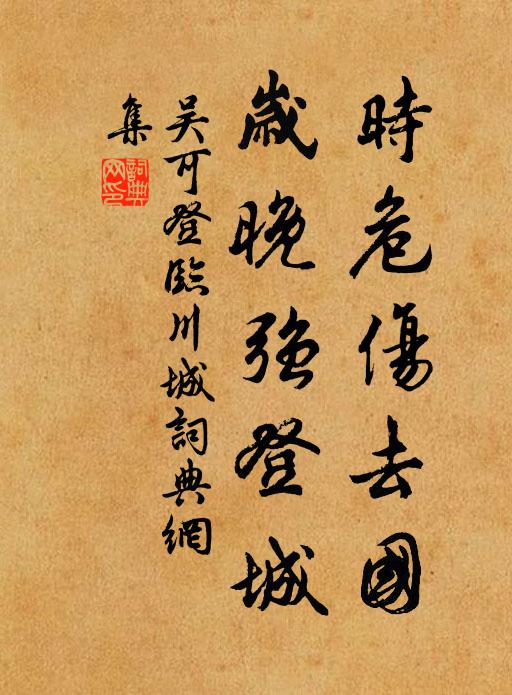 時危傷去國
歲晚強登城
吴可登臨川城詞典網
集
詞典網印